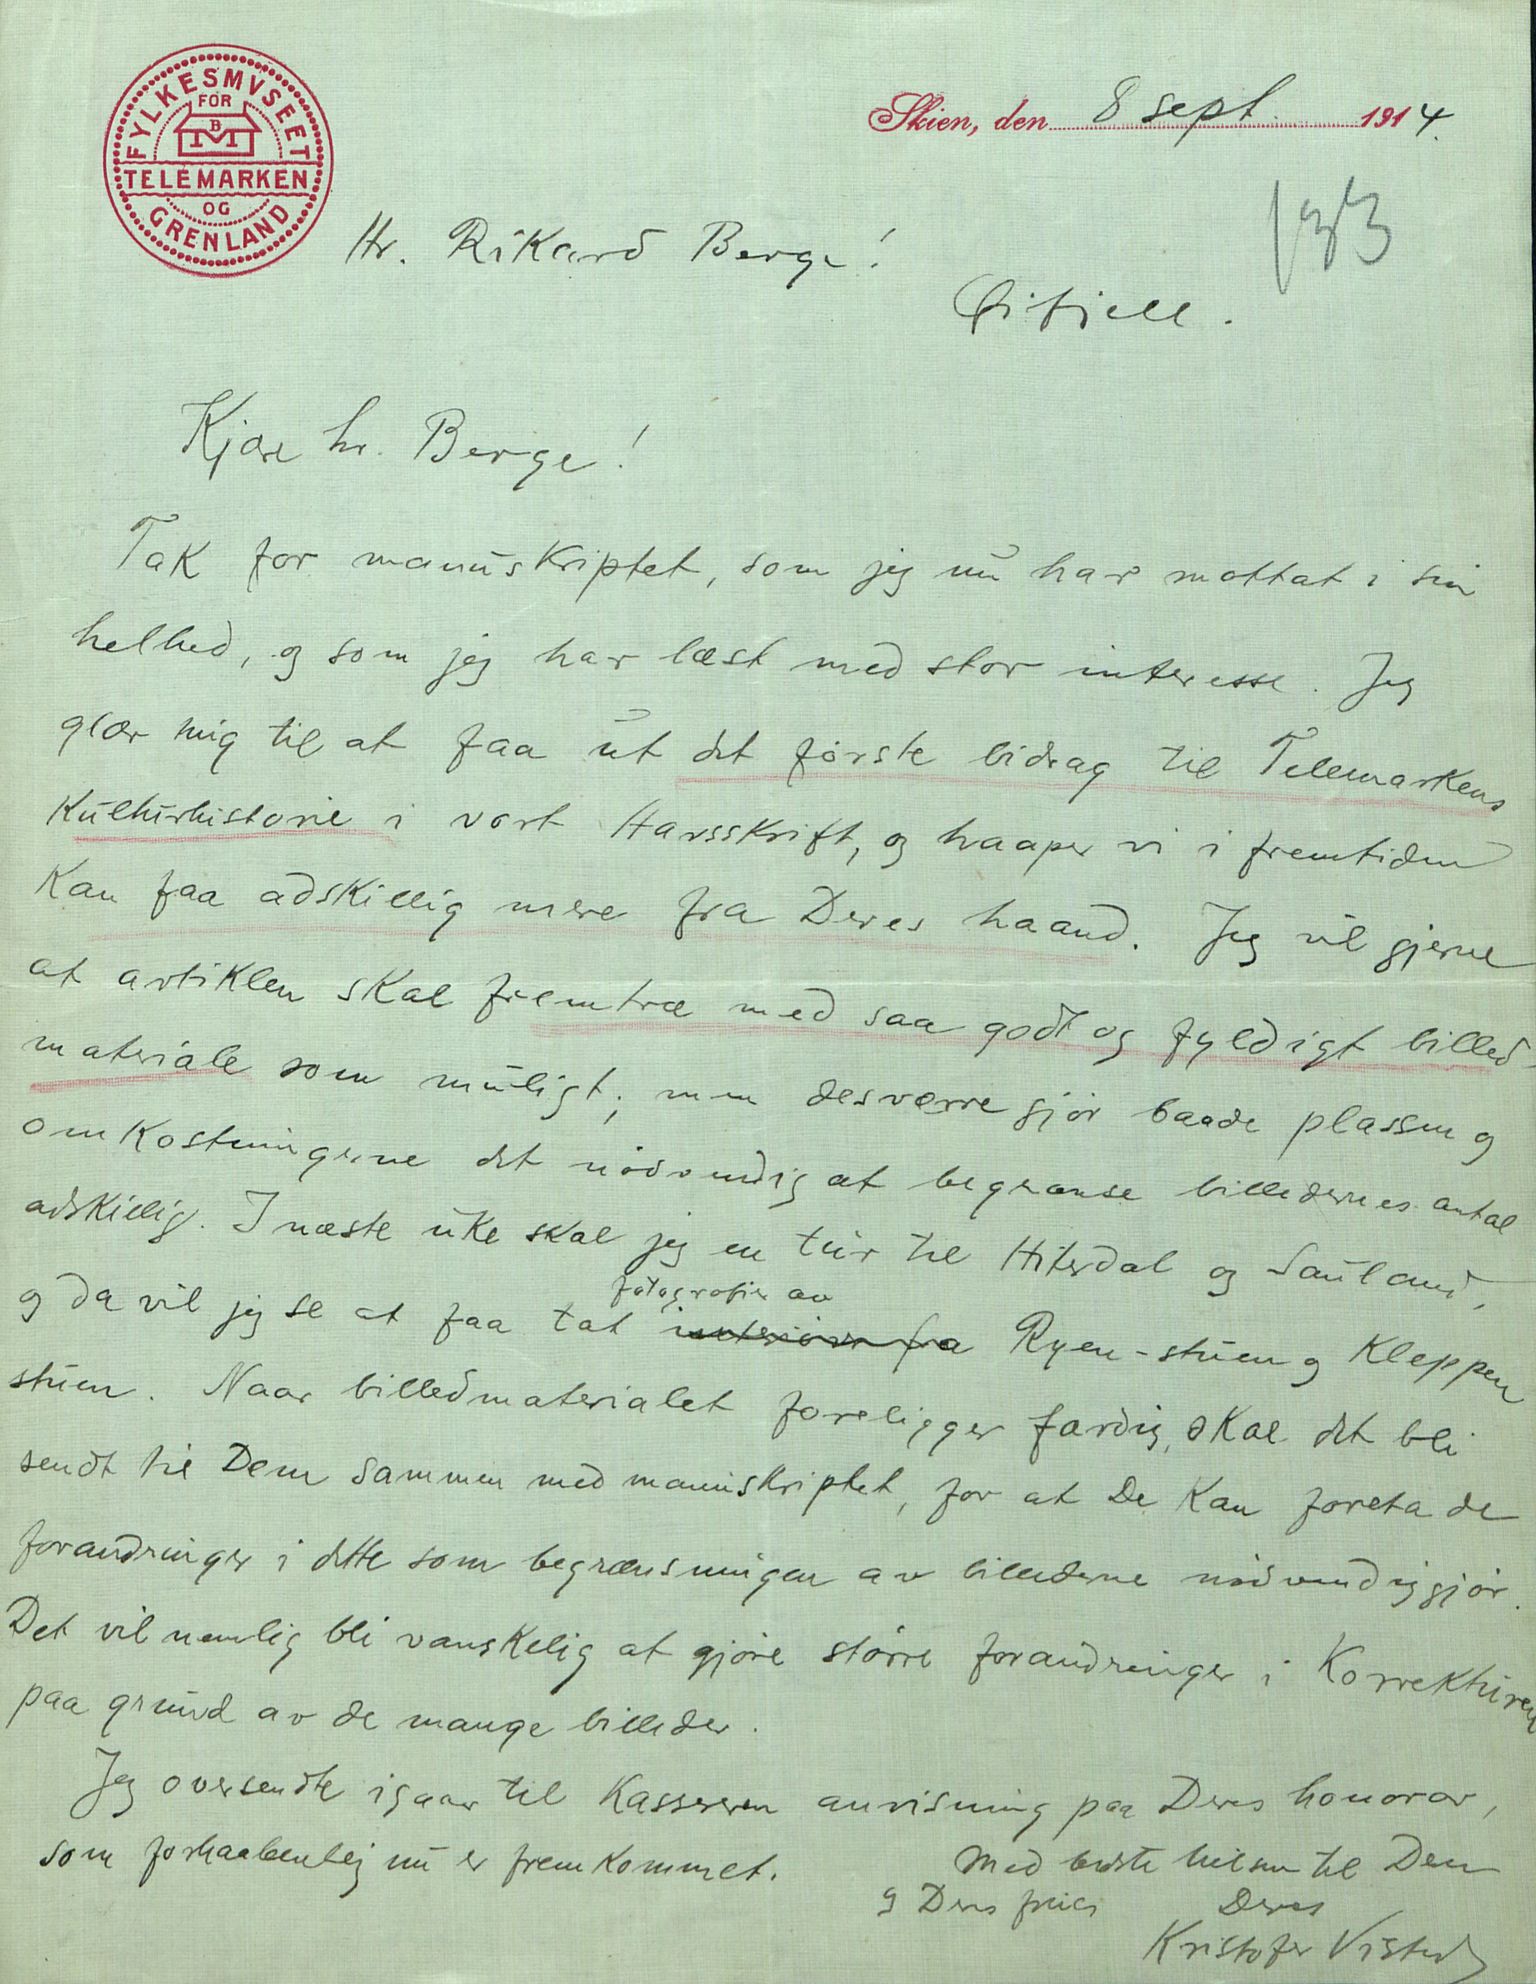 FYLKESMVSEET
FOR
BM
TELEMARKEN
OG
GRENLAND
Skien, den 8 sept. 1914.
133
Hr. Rikard Berge!
Øifjell.
Kjære hr. Berge!
Tak for manuskriptet, som jeg nu har mottat i sin
helhed, og som jeg har læst med stor interesse. Jeg
glær mig til at faa ut det første bidrag til Telemarkens
Kulturhistorie i vort Aarsskrift, og haaper vi i fremtiden
kan faa adskillig mere fra Deres haand. Jeg vil gjerne
at artiklen skal fremtræ med saa godt og fyldigt billed-
materiale som muligt; men desværre gjør baade plassen og
omkostningerne det nødvendig at begrænse billedernes antal
adskillig. I næste uke skal jeg en tur til Hiterdal og Sauland,
fotografier av
og da vil jeg se at faa tat interiører fra Ryen-stuen og Kleppen
stuen. Naar billedmaterialet foreligger færdig, skal det bli
sendt til Dem sammen med manuskriptet, for at De kan foreta de
forandringer i dette som begrænsningen av billederne nødvendiggjør.
Det vil nemlig bli vanskelig at gjøre større forandringer i korrekturen
paa grund av de mange billeder.
Jeg oversendte igaar til kassereren anvisning paa Deres honorar,
som forhaabentlig nu er fremkommet.
Med bedste hilsen til Dem
og Deres frue
Deres
Kristofer Visted